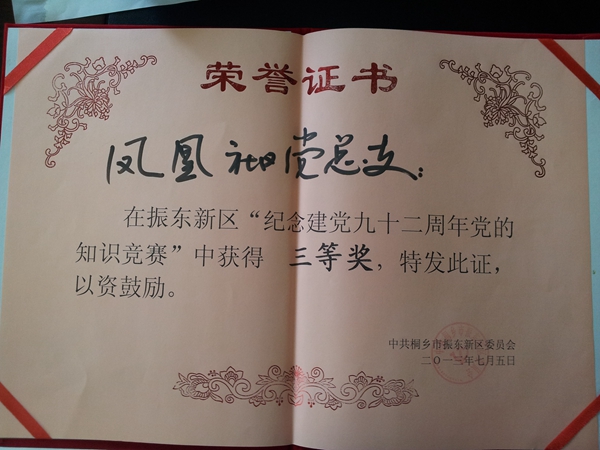 荣誉证书
凤凰社区党总支：
在振东新区“纪念建党九十二周年党的
知识竞赛”中获得 三等奖，特发此证，
以资鼓励。
中共桐乡市振东新区委员会
二〇一三年七月五日